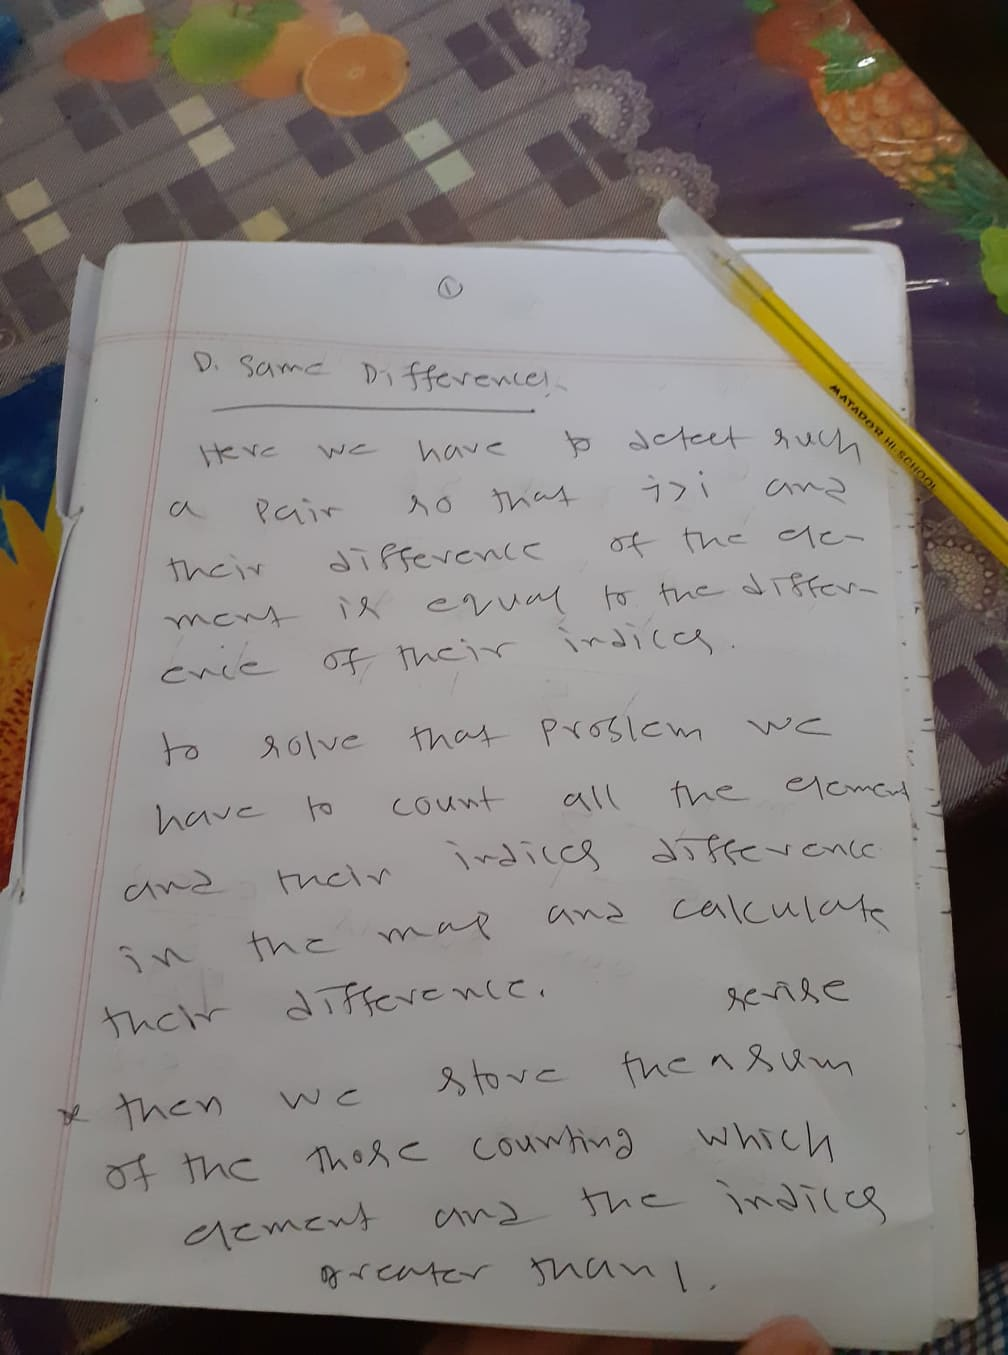 1
D. Same Differences
Here we have to detect such
a pair so that j>i and
their difference of the ele-
ment is equal to the differ-
ence of their indices.
to solve that problem we
have to count all the element
and their indices difference
in the map and calculate
their difference.
* then we store the sum
of the those counting which
element and the indices
greater than 1.
MATADOR HI-SCHOOL